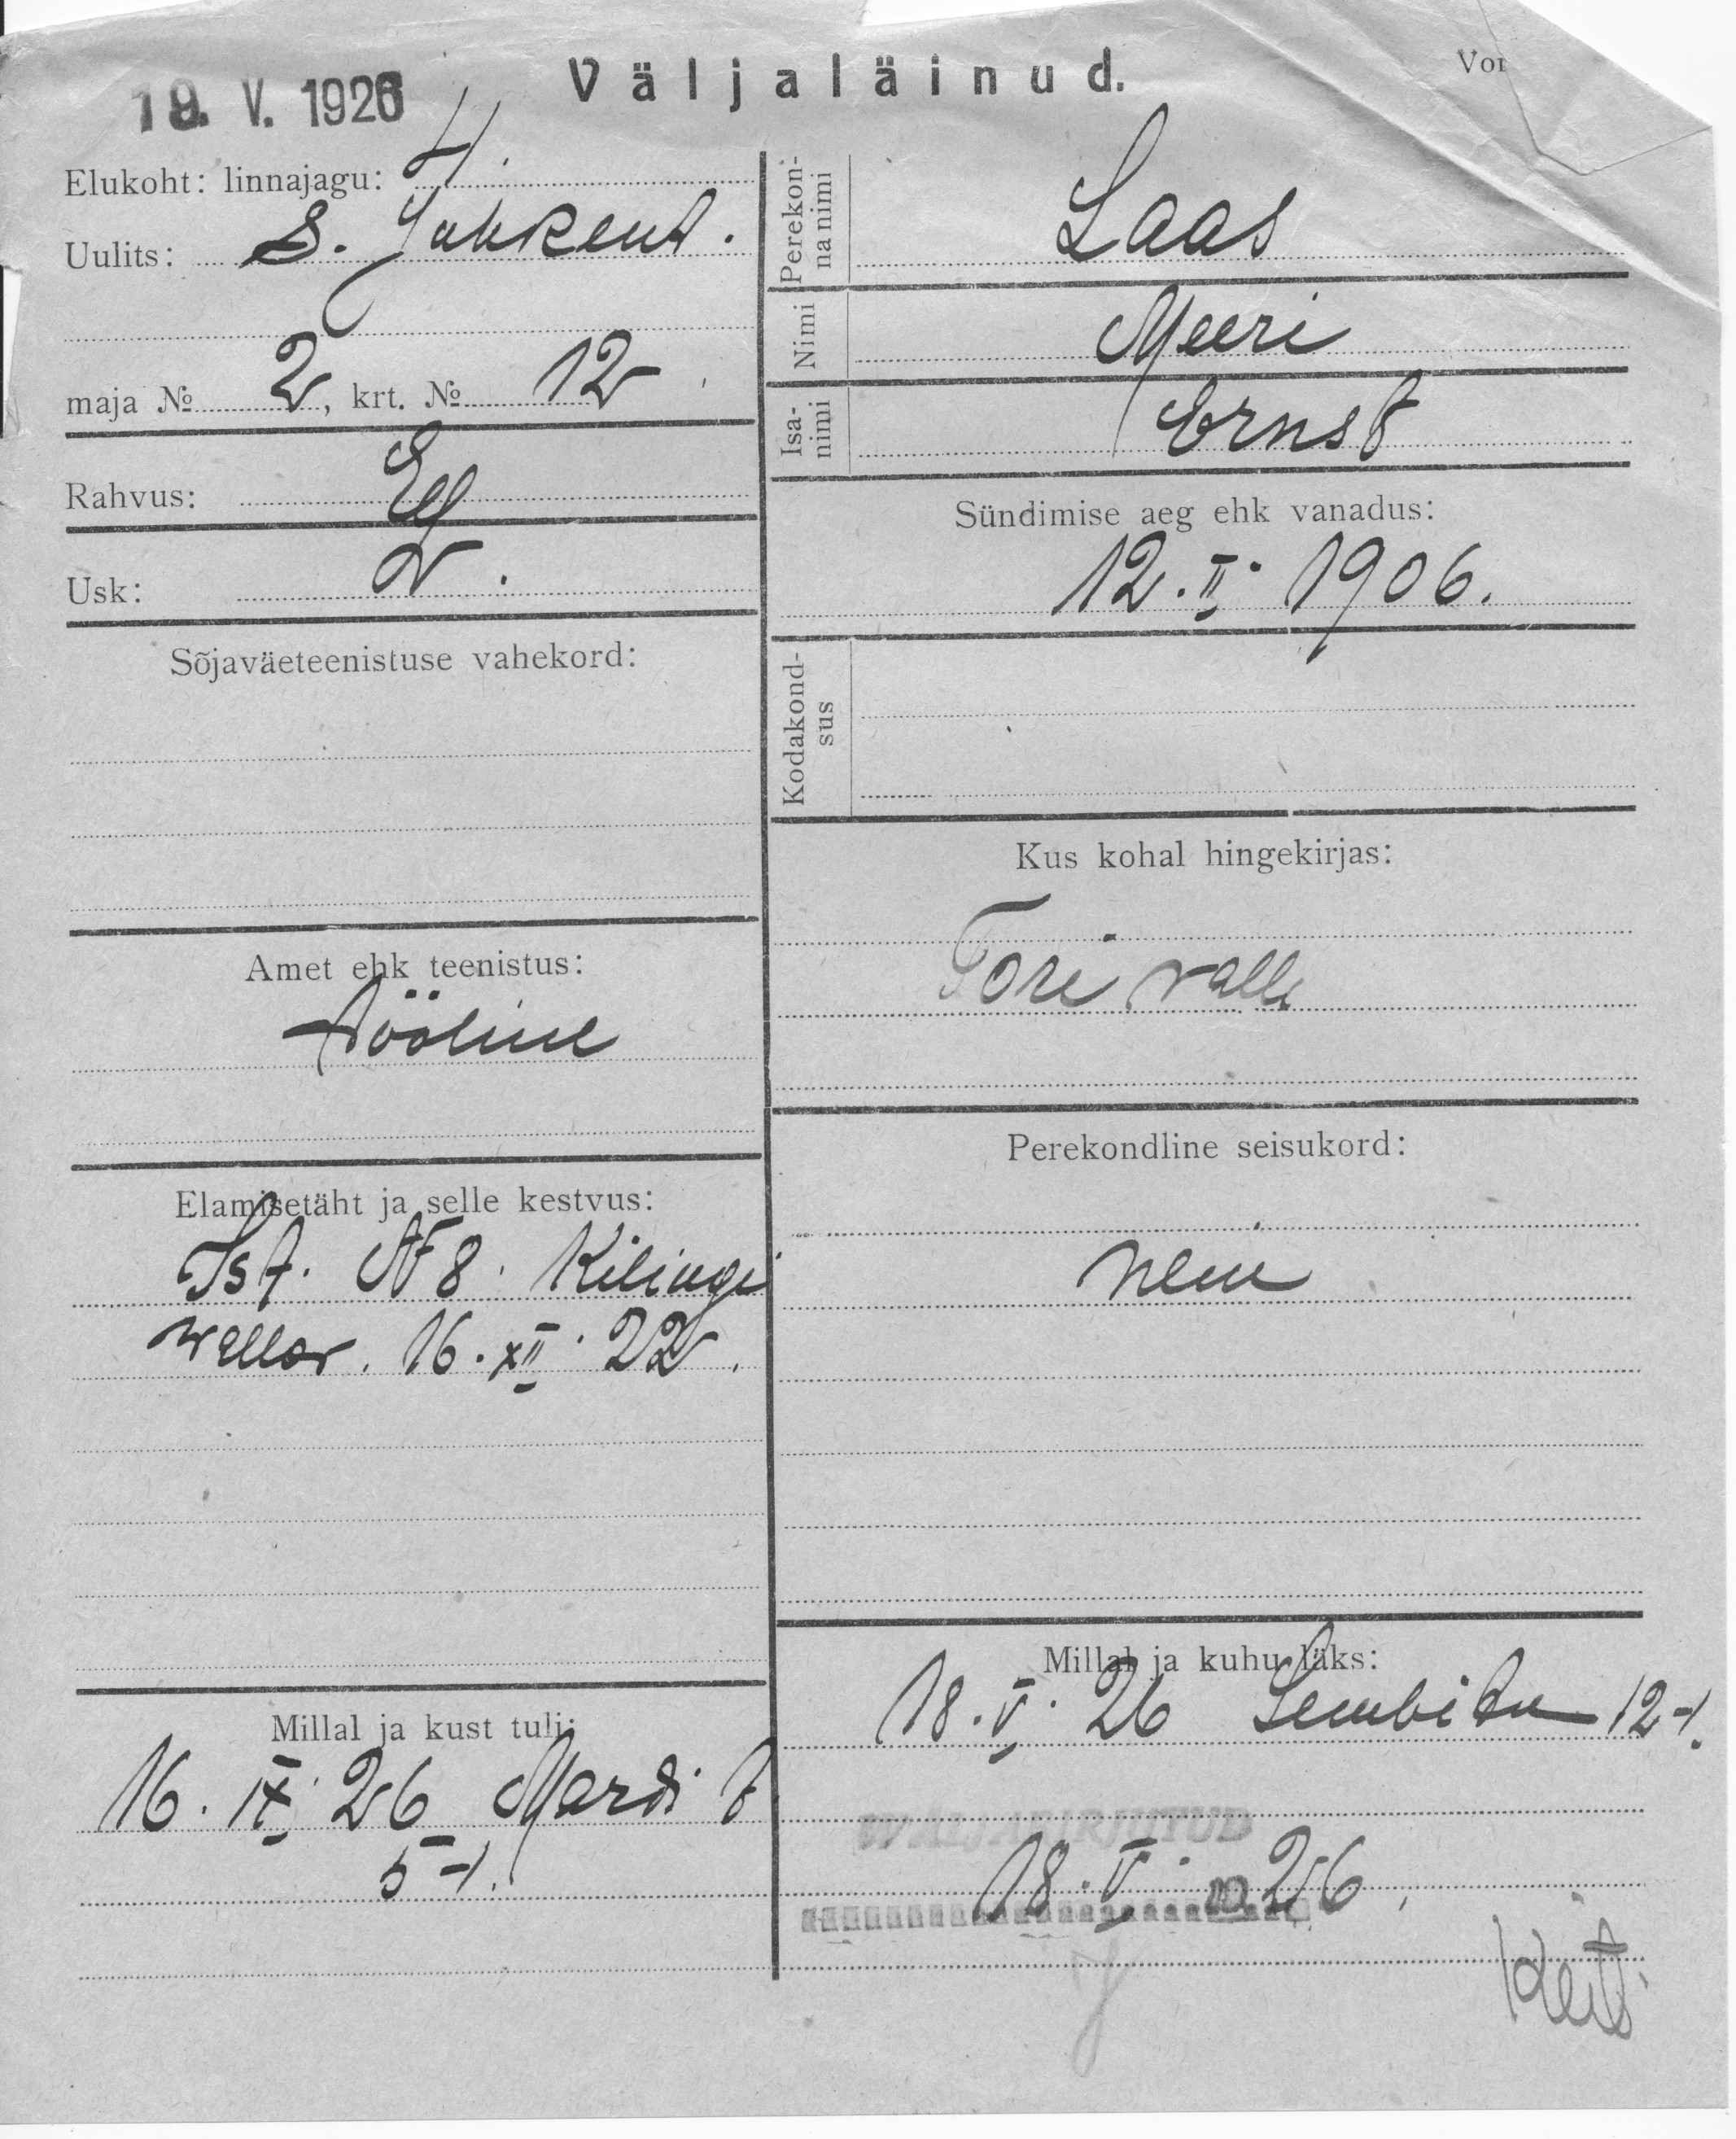 19. V. 1926
Väljaläinud.
Vor
Elukoht: linnajagu:
Uulits: S.
maja № 2, krt. № 12
Rahvus:
Usk:
Sõjaväeteenistuse vahekord:
Amet ehk teenistus:
tööline
Elamisetäht ja selle kestvus:
Ist. № 8. Kilingi
16. XII. 22.
Millal ja kust tuli:
16. IX. 26 Mardi t
5-1.
Perekon-
na nimi
Laas
Nimi
Meeri
Isa-
nimi
Ernst
Sündimise aeg ehk vanadus:
12. II. 1906.
Kodakond-
sus
Kus kohal hingekirjas:
Tori valla
Perekondline seisukord:
neiu
Millal ja kuhu läks:
18. V. 26 Lembitu 12-1.
18. V. 26.